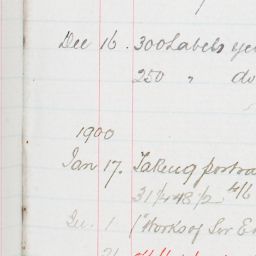 Dec 16. 300 Labels ye
250 " do
1900
Jan 17. Taking portra
31/2 4/6
" 1 ("Works of Sir E